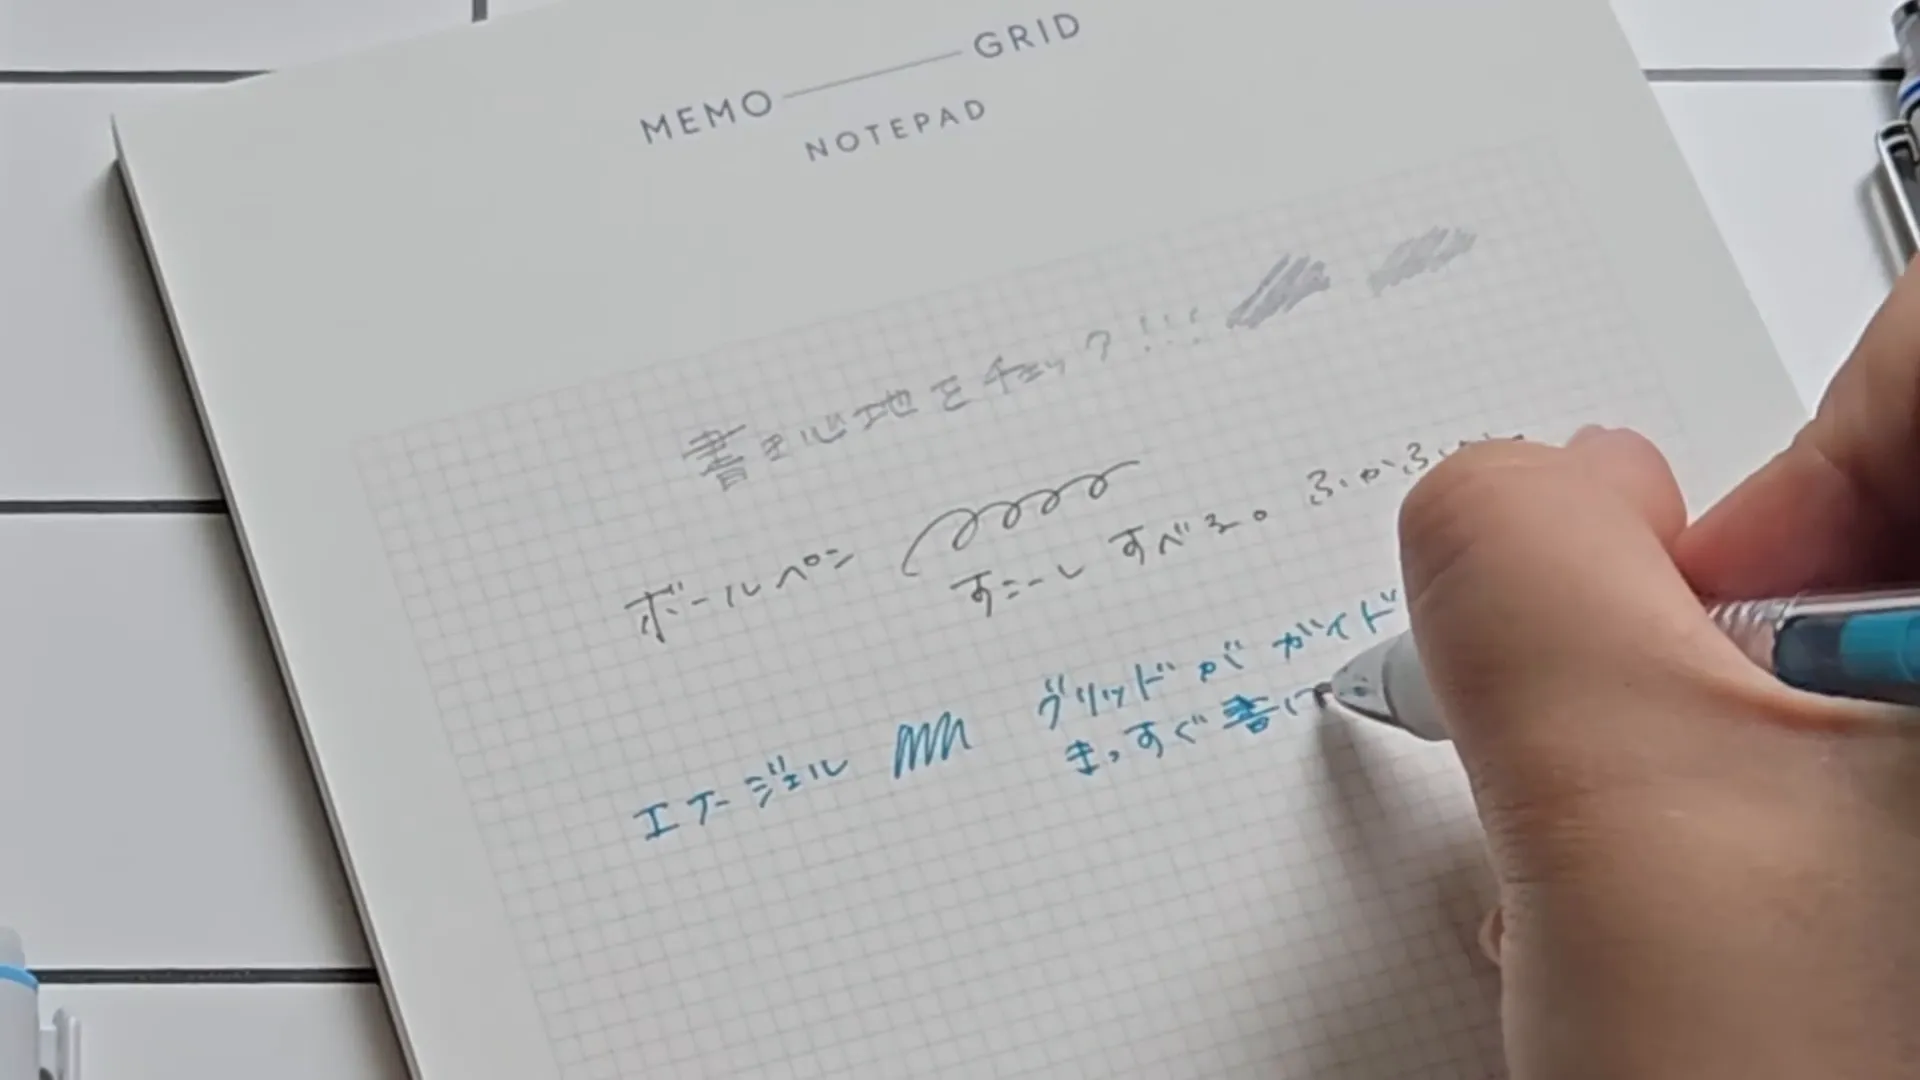 MEMO GRID
NOTEPAD
書き心地をチェック!!!
ボールペン
すこーしすべる。ふかふか
エナージェル
グリッドがガイド
まっすぐ書け